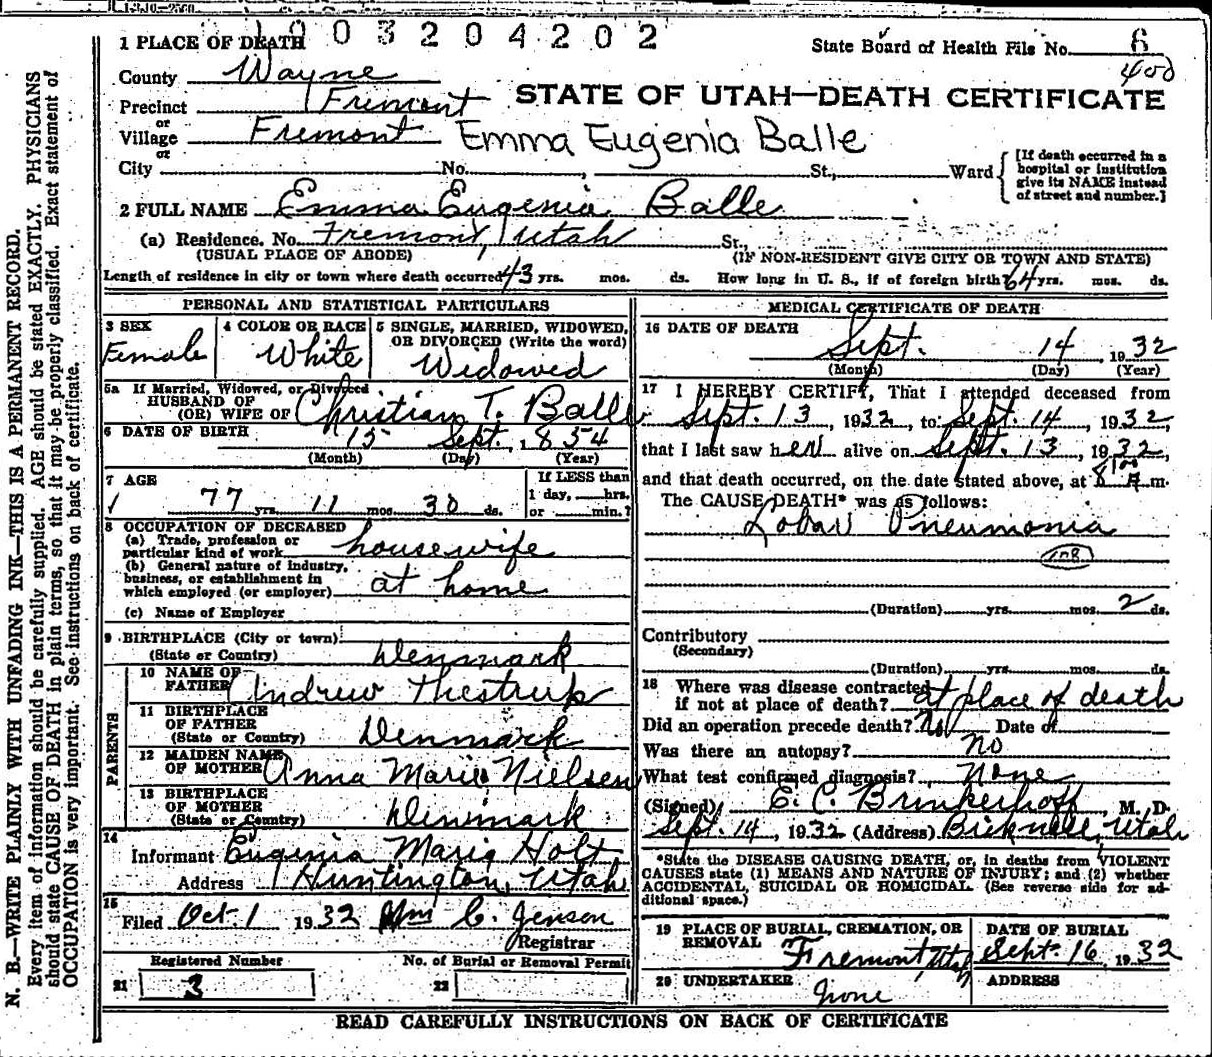 1003204202
1 PLACE OF DEATH
State Board of Health File No. 6
400
County Wayne
Precinct Fremont
STATE OF UTAH—DEATH CERTIFICATE
or
Village Fremont Emma Eugenia Balle
or
City No. , St., Ward
[If death occurred in a
hospital or institution
give its NAME instead
of street and number.]
2 FULL NAME Emma Eugenia Balle
(a) Residence. No. Fremont, Utah St.,
(USUAL PLACE OF ABODE) (IF NON-RESIDENT GIVE CITY OR TOWN AND STATE)
Length of residence in city or town where death occurred 43 yrs. mos. ds. How long in U. S., if of foreign birth? 64 yrs. mos. ds.
PERSONAL AND STATISTICAL PARTICULARS
3 SEX
Female
4 COLOR OR RACE
White
5 SINGLE, MARRIED, WIDOWED,
OR DIVORCED (Write the word)
Widowed
5a If Married, Widowed, or Divorced
HUSBAND OF
(OR) WIFE OF Christian T. Balle
6 DATE OF BIRTH 15 Sept. , 1854
(Month) (Day) (Year)
7 AGE
77 yrs. 11 mos. 30 ds.
If LESS than
1 day, hrs.
or min.?
8 OCCUPATION OF DECEASED
(a) Trade, profession or
particular kind of work housewife
(b) General nature of industry,
business, or establishment in
which employed (or employer) at home
(c) Name of Employer
9 BIRTHPLACE (City or town)
(State or Country) Denmark
PARENTS
10 NAME OF
FATHER Andrew Thestrup
11 BIRTHPLACE
OF FATHER
(State or Country) Denmark
12 MAIDEN NAME
OF MOTHER Anna Marie Nielsen
13 BIRTHPLACE
OF MOTHER
(State or Country) Denmark
14
Informant Euginia Marie Holt
Address Huntington, Utah
15
Filed Oct. 1 1932 Wm C. Jenson
Registrar
Registered Number No. of Burial or Removal Permit
21 3 22
MEDICAL CERTIFICATE OF DEATH
16 DATE OF DEATH
Sept. 14 , 1932
(Month) (Day) (Year)
17 I HEREBY CERTIFY, That I attended deceased from
Sept. 13 , 1932, to Sept. 14 , 1932,
that I last saw her alive on Sept. 13 , 1932,
and that death occurred, on the date stated above, at 8 100 A m.
The CAUSE DEATH* was as follows:
Lobar Pneumonia
108
(Duration) yrs. mos. 2 ds.
Contributory
(Secondary)
(Duration) yrs. mos. ds.
18 Where was disease contracted
if not at place of death? at place of death
Did an operation precede death? No Date of
Was there an autopsy? no
What test confirmed diagnosis? None
(Signed) E. C. Brinkerhoff, M. D.
Sept. 14 , 1932 (Address) Bicknell, Utah
*State the DISEASE CAUSING DEATH, or, in deaths from VIOLENT
CAUSES state (1) MEANS AND NATURE OF INJURY; and (2) whether
ACCIDENTAL, SUICIDAL OR HOMICIDAL. (See reverse side for ad-
ditional space.)
19 PLACE OF BURIAL, CREMATION, OR
REMOVAL
Fremont, Utah
DATE OF BURIAL
Sept. 16, 1932
20 UNDERTAKER
None
ADDRESS
READ CAREFULLY INSTRUCTIONS ON BACK OF CERTIFICATE
N. B.—WRITE PLAINLY WITH UNFADING INK—THIS IS A PERMANENT RECORD.
Every item of information should be carefully supplied. AGE should be stated EXACTLY. PHYSICIANS
should state CAUSE OF DEATH in plain terms, so that it may be properly classified. Exact statement of
OCCUPATION is very important. See instructions on back of certificate.